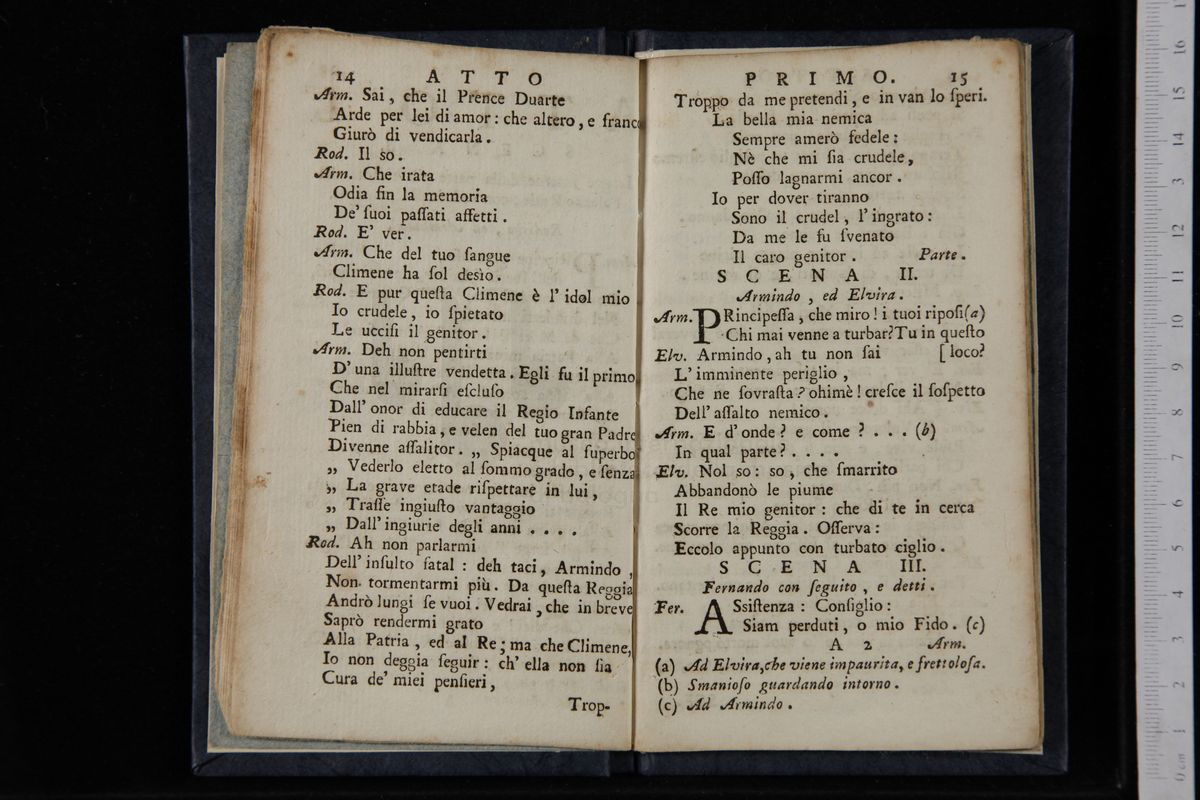 14 ATTO
Arm. Sai, che il Prence Duarte
Arde per lei di amor: che altero, e franco
Giurò di vendicarla.
Rod. Il so.
Arm. Che irata
Odia ſin la memoria
De' ſuoi paſſati affetti.
Rod. E' ver.
Arm. Che del tuo ſangue
Climene ha ſol desìo.
Rod. E pur queſta Climene è l'idol mio
Io crudele, io ſpietato
Le ucciſi il genitor.
Arm. Deh non pentirti
D'una illuſtre vendetta. Egli fu il primo
Che nel mirarſi eſcluſo
Dall'onor di educare il Regio Infante
Pien di rabbia, e velen del tuo gran Padre
Divenne aſſalitor. „ Spiacque al ſuperbo
„ Vederlo eletto al ſommo grado, e ſenza
„ La grave etade riſpettare in lui,
„ Traſſe ingiuſto vantaggio
„ Dall'ingiurie degli anni ....
Rod. Ah non parlarmi
Dell'inſulto fatal: deh taci, Armindo,
Non tormentarmi più. Da queſta Reggia
Andrò lungi ſe vuoi. Vedrai, che in breve
Saprò rendermi grato
Alla Patria, ed al Re; ma che Climene,
Io non deggia ſeguir: ch'ella non ſia
Cura de' miei penſieri,
Trop-
PRIMO. 15
Troppo da me pretendi, e in van lo ſperi.
La bella mia nemica
Sempre amerò fedele:
Nè che mi ſia crudele,
Poſſo lagnarmi ancor.
Io per dover tiranno
Sono il crudel, l'ingrato:
Da me le fu ſvenato
Il caro genitor. Parte.
SCENA II.
Armindo, ed Elvira.
Arm. PRincipeſſa, che miro! i tuoi ripoſi (a)
Chi mai venne a turbar? Tu in queſto
Elv. Armindo, ah tu non ſai [loco?
L'imminente periglio,
Che ne ſovraſta? ohimè! creſce il ſoſpetto
Dell'aſſalto nemico.
Arm. E d'onde? e come? ... (b)
In qual parte? ....
Elv. Nol so: so, che ſmarrito
Abbandonò le piume
Il Re mio genitor: che di te in cerca
Scorre la Reggia. Oſſerva:
Eccolo appunto con turbato ciglio.
SCENA III.
Fernando con ſeguito, e detti.
Fer. ASſiſtenza: Conſiglio:
Siam perduti, o mio Fido. (c)
A 2 Arm.
(a) Ad Elvira, che viene impaurita, e frettoloſa.
(b) Smanioſo guardando intorno.
(c) Ad Armindo.